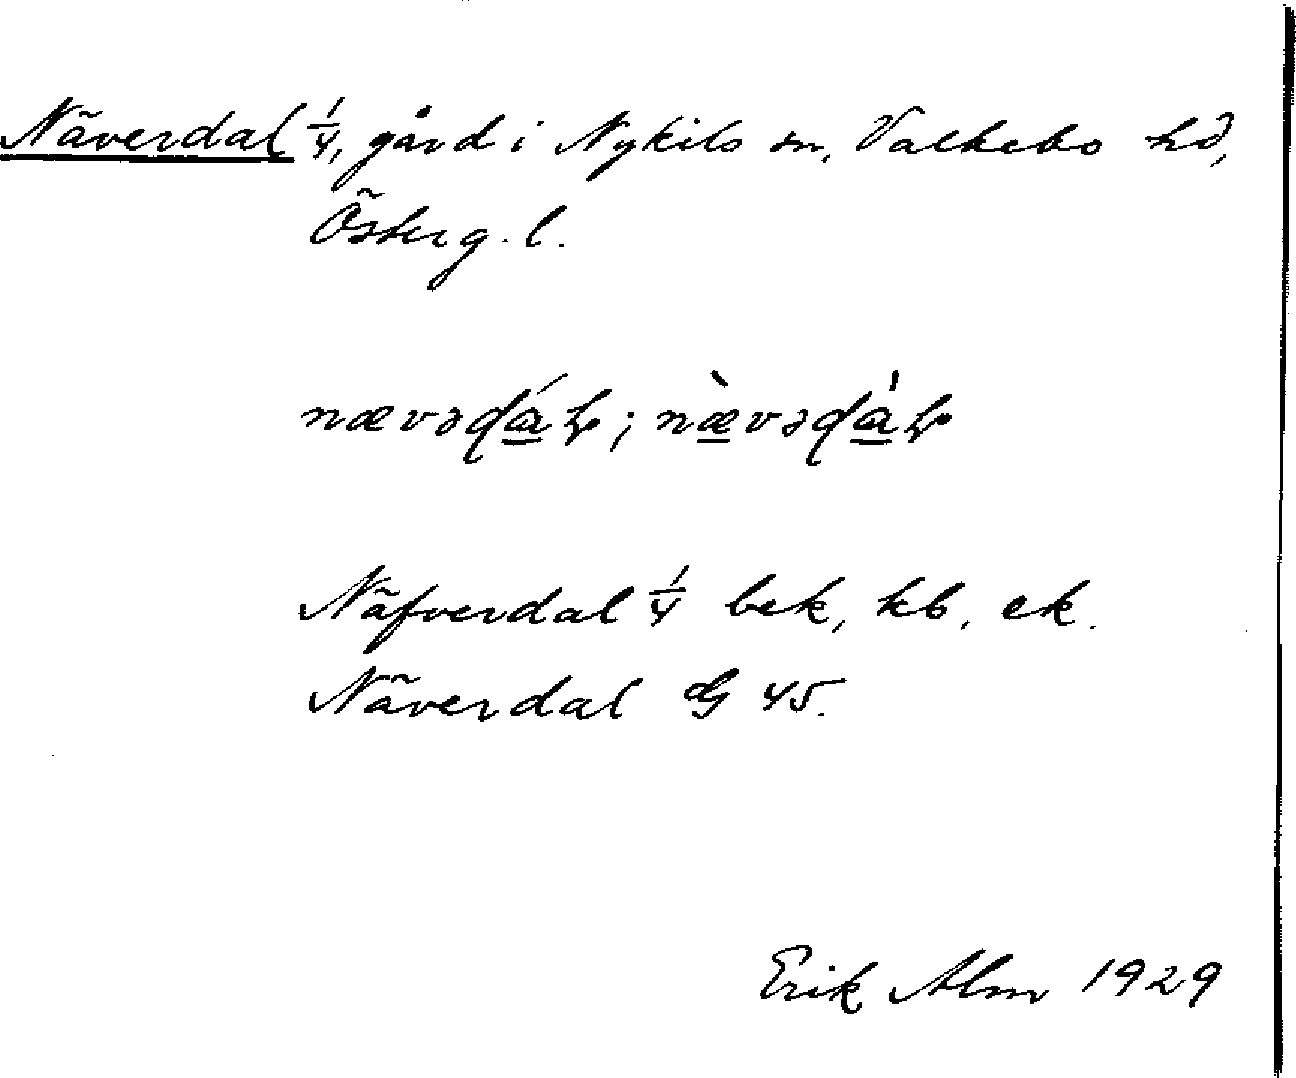 Näverdal 1/4, gård i Nykils sn, Valkebo hd,
Österg. l.
Näfverdal 1/4 bek, kb, ek.
Näverdal G 45.
Erik Alm 1929